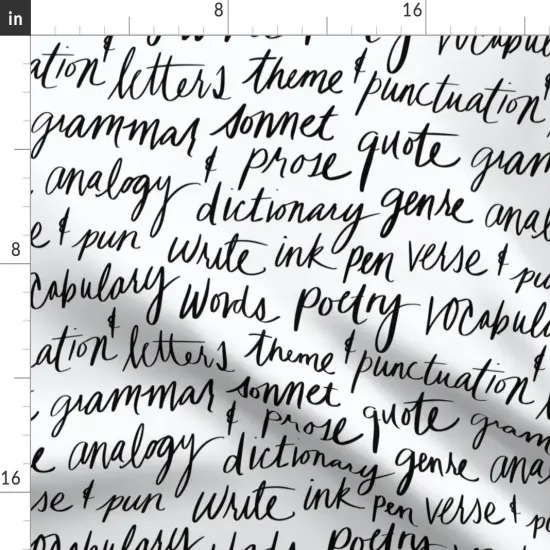 in 8 16
vocabul
ation & letters theme & punctuation &
grammar sonnet quote gram
& prose
analogy dictionary genre anal
e & pun write ink pen verse & pu
cabulary words poetry vocabul
ation & letters theme & punctuation &
grammar sonnet quote gram
& prose
e analogy dictionary genre ana
8
16
se & pun write ink pen verse & pu
ocabulary words poetry